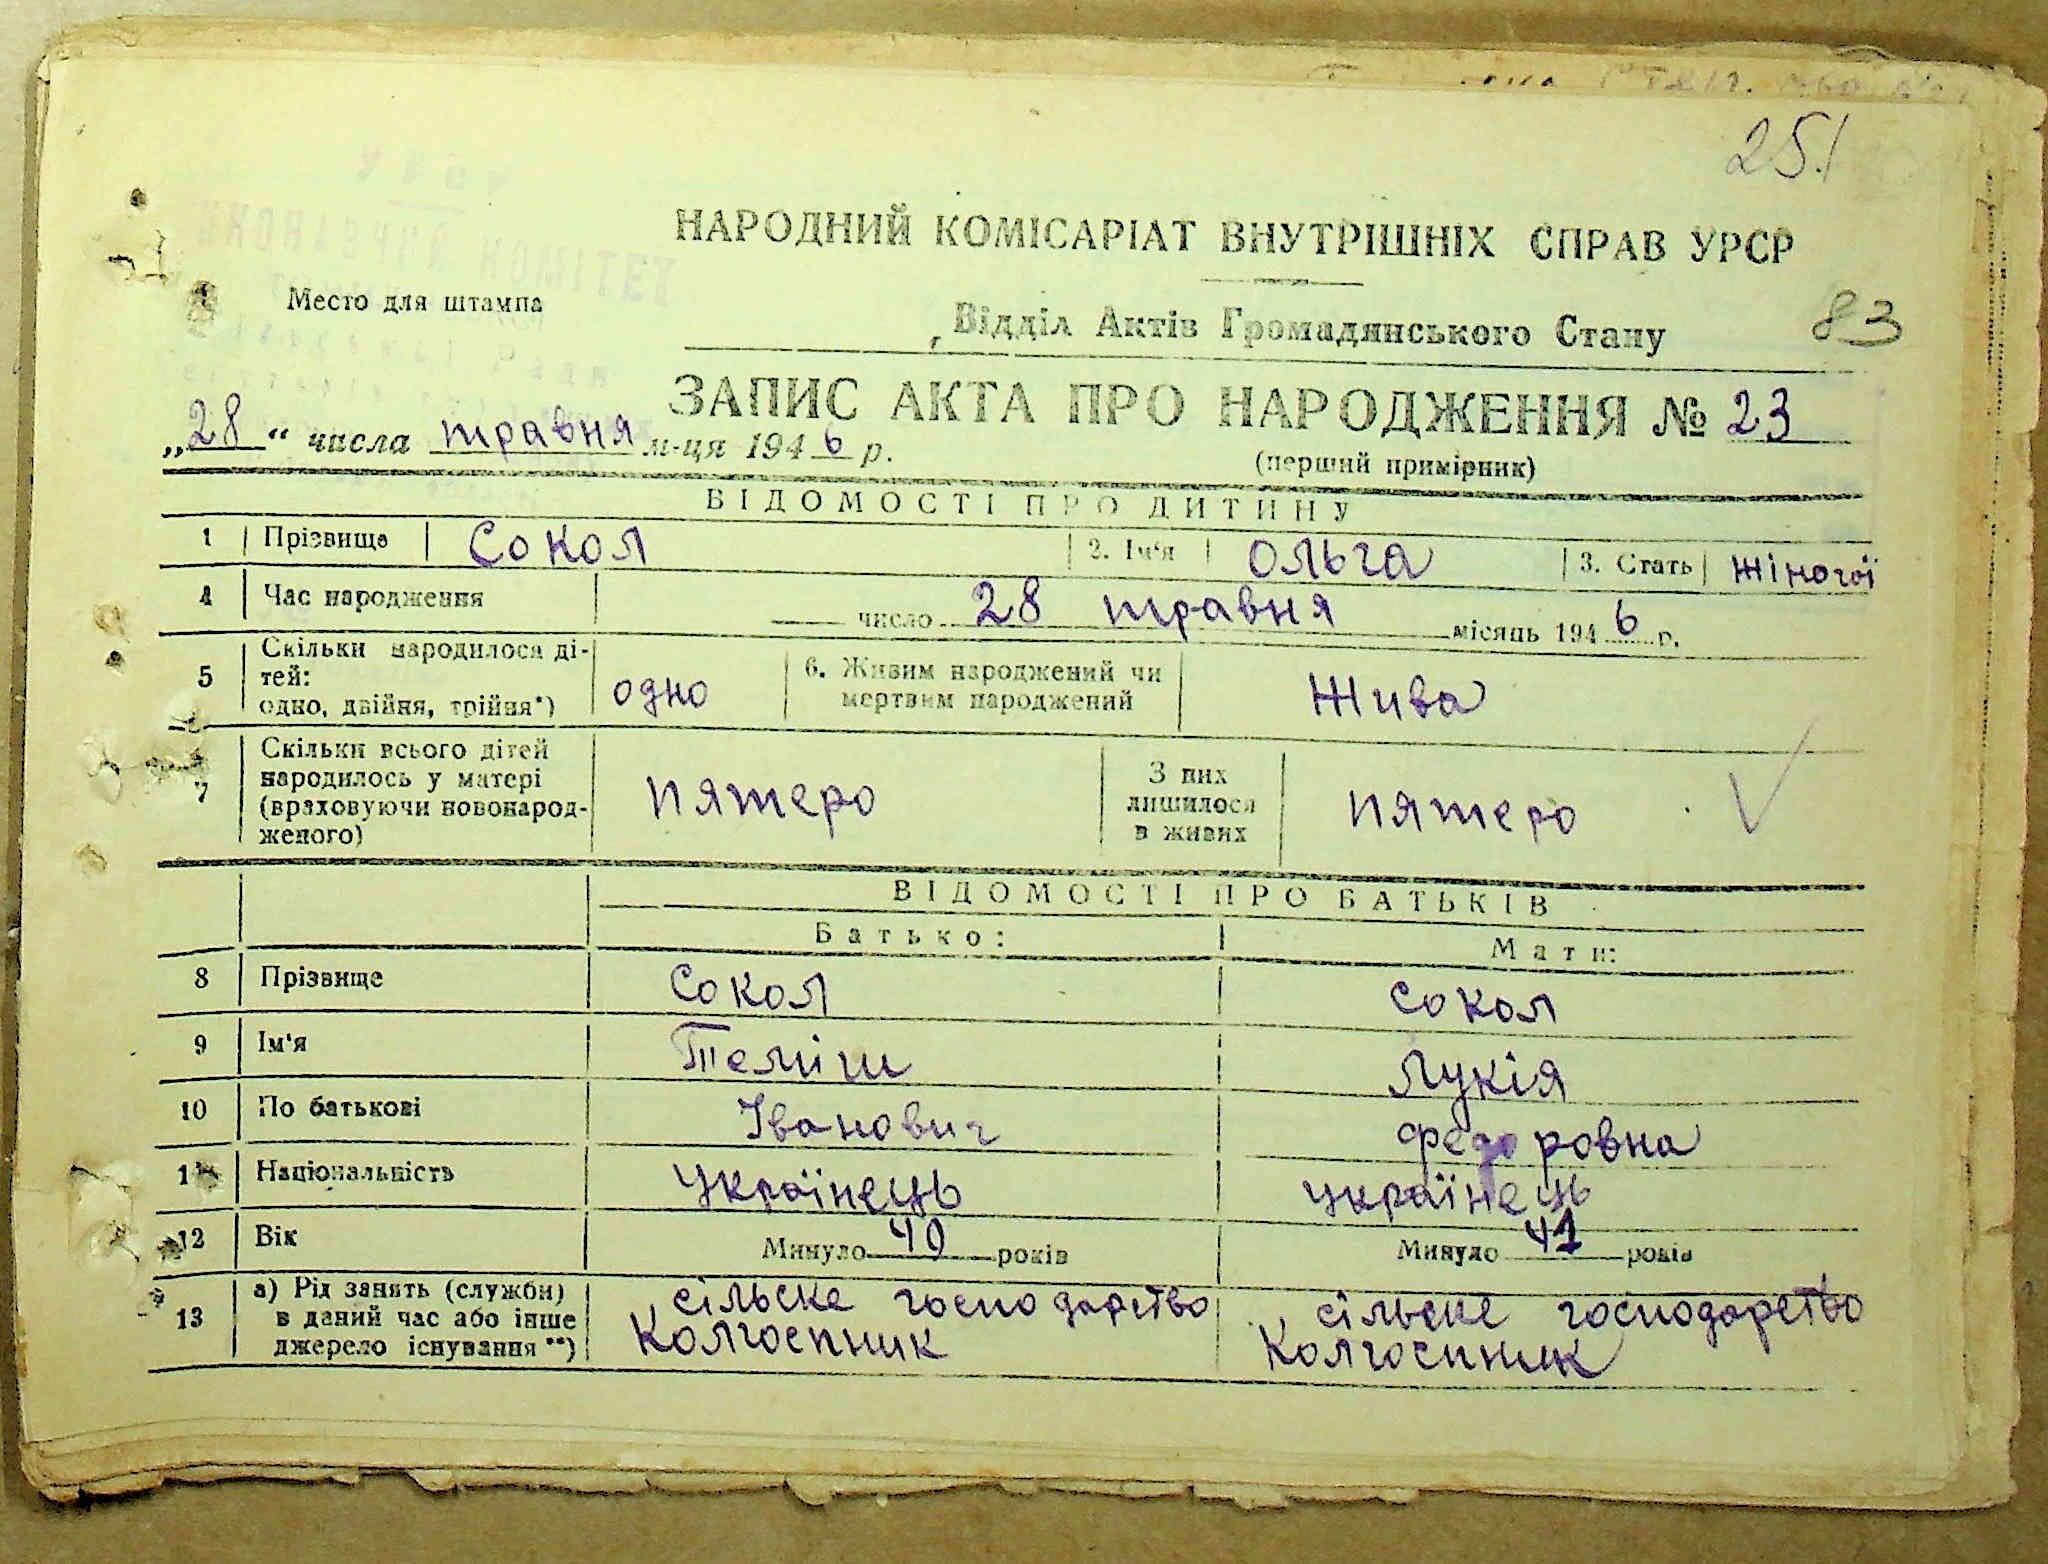 251
НАРОДНИЙ КОМІСАРІАТ ВНУТРІШНІХ СПРАВ УРСР
Место для штампа
Відділ Актів Громадянського Стану
83
ЗАПИС АКТА ПРО НАРОДЖЕННЯ № 23
„28“ числа травня м-ця 1946 р.
(перший примірник)
ВІДОМОСТІ ПРО ДИТИНУ
1 Прізвище Сокол 2. Ім'я Ольга 3. Стать жіночої
4 Час народження число 28 травня місяць 1946 р.
5 Скільки народилося ді-
тей:
одно, двійня, трійня*) одно
6. Живим народжений чи
мертвим народжений Жива
7 Скільки всього дітей
народилось у матері
(враховуючи новонарод-
женого) пятеро
З них
лишилося
в живих пятеро
ВІДОМОСТІ ПРО БАТЬКІВ
Батько: Мати:
8 Прізвище Сокол Сокол
9 Ім'я Теміш Лукія
10 По батькові Іванович Федоровна
11 Національність Українець Українець
12 Вік Минуло 40 років Минуло 41 років
13 а) Рід занять (служби)
в даний час або інше
джерело існування **)
сільске господарство
Колгоспник
сільске господарство
Колгоспник